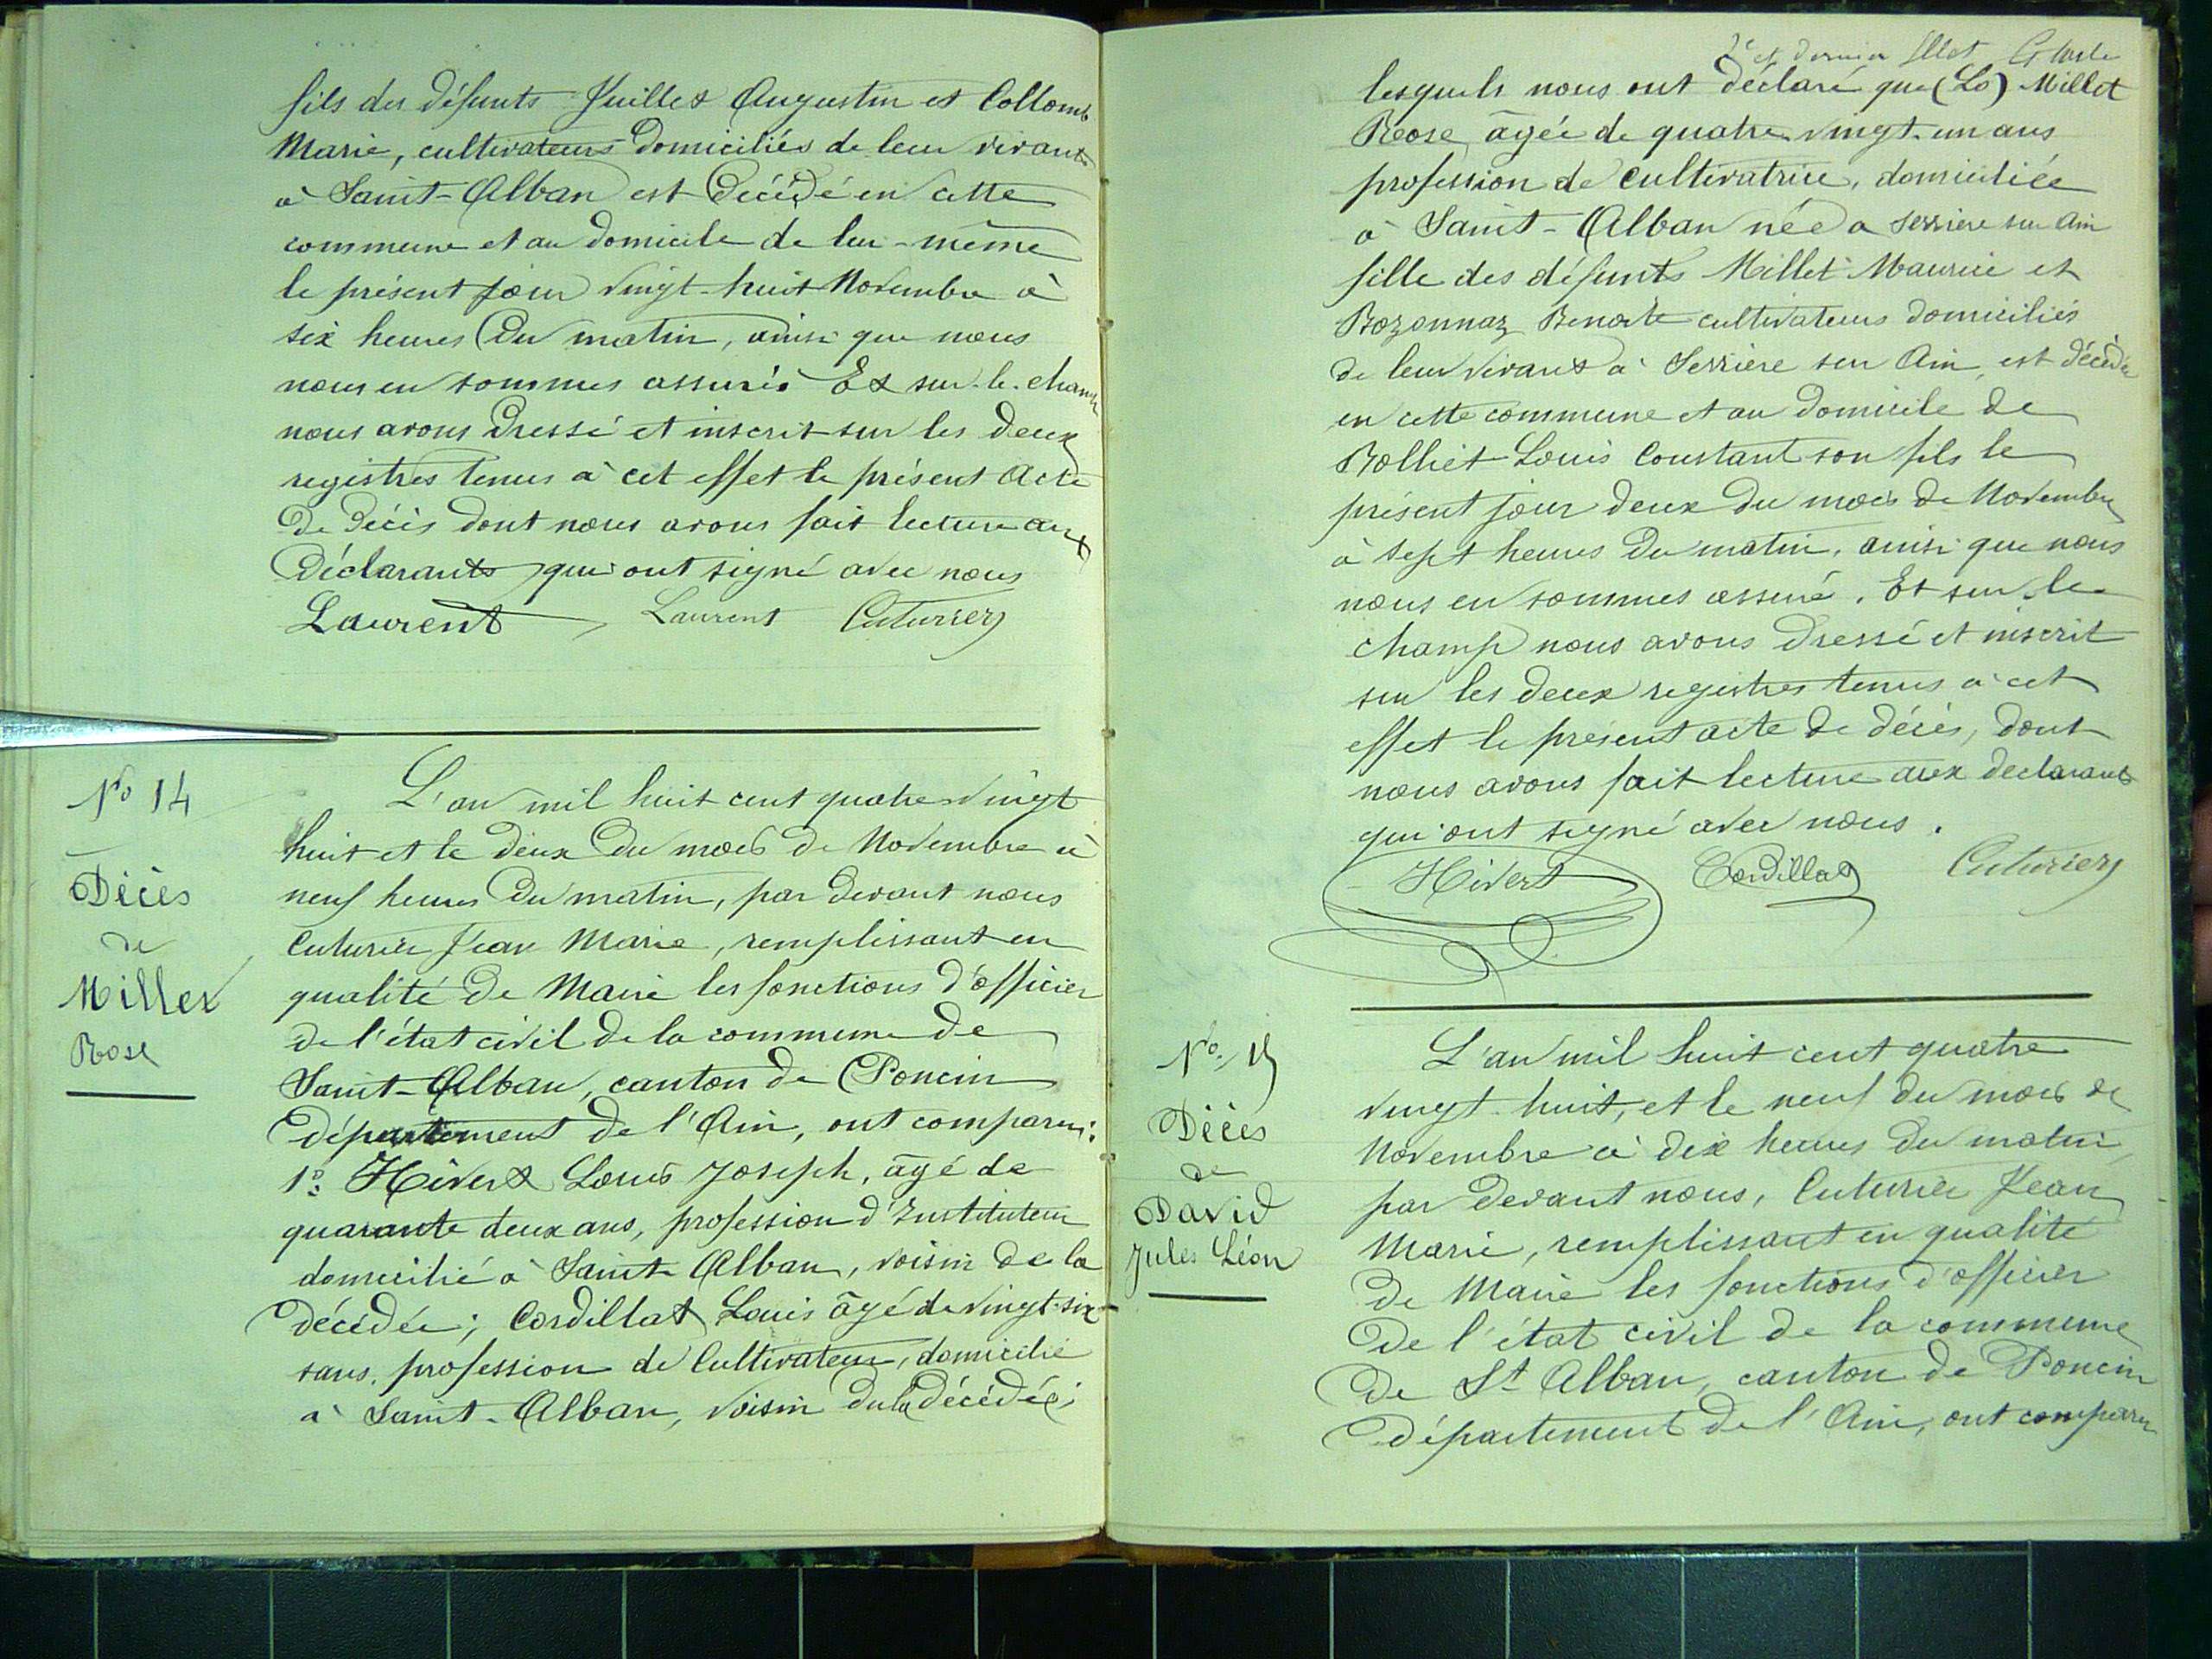 fils des défunts Juillet Augustin et Collomb
Marie, cultivateurs domiciliés de leur vivant
à Saint-Alban est décédé en cette
commune et au domicile de lui-même
le présent jour vingt-huit Novembre à
six heures du matin, ainsi que nous
nous en sommes assuré. Et sur-le-champ
nous avons dressé et inscrit sur les deux
registres tenus à cet effet le présent acte
de décès dont nous avons fait lecture aux
déclarants qui ont signé avec nous
Laurent Laurent Cuturier
No 14
Décès
de
Millet
Rose
L'an mil huit cent quatre vingt
huit et le deux du mois de Novembre à
neuf heures du matin, par devant nous
Cuturier Jean Marie, remplissant en
qualité de Maire les fonctions d'officier
de l'état civil de la commune de
Saint-Alban, canton de Poncin
département de l'Ain, ont comparu:
1o: Hivert Louis Joseph, âgé de
quarante deux ans, profession d'Instituteur
domicilié à Saint-Alban, voisin de la
décédée; Cordillat Louis âgé de vingt-six
ans, profession de Cultivateur, domicilié
à Saint-Alban, voisin du la décédée;
2e et dernier
lesquels nous ont déclaré que (La) Millet
Rose, âgée de quatre vingt-un ans
profession de Cultivatrice, domiciliée
à Saint-Alban née à Serrière sur Ain
fille des défunts Millet Maurice et
Bozonnaz Benoîte cultivateurs domiciliés
de leur vivant à Serrière sur Ain, est décédée
en cette commune et au domicile de
Bolliet Louis Constant son fils le
présent jour deux du mois de Novembre
à sept heures du matin, ainsi que nous
nous en sommes assuré. Et sur-le-
champ nous avons dressé et inscrit
sur les deux registres tenus à cet
effet le présent acte de décès, dont
nous avons fait lecture aux déclarants
qui ont signé avec nous.
Hivert Cordillat Cuturier
No. 15
Décès
de
David
Jules Léon
L'an mil huit cent quatre
vingt-huit, et le neuf du mois de
Novembre à dix heures du matin
par devant nous, Cuturier Jean
Marie, remplissant en qualité
de Maire les fonctions d'officier
de l'état civil de la commune
de St Alban, canton de Poncin
département de l'Ain, ont comparu